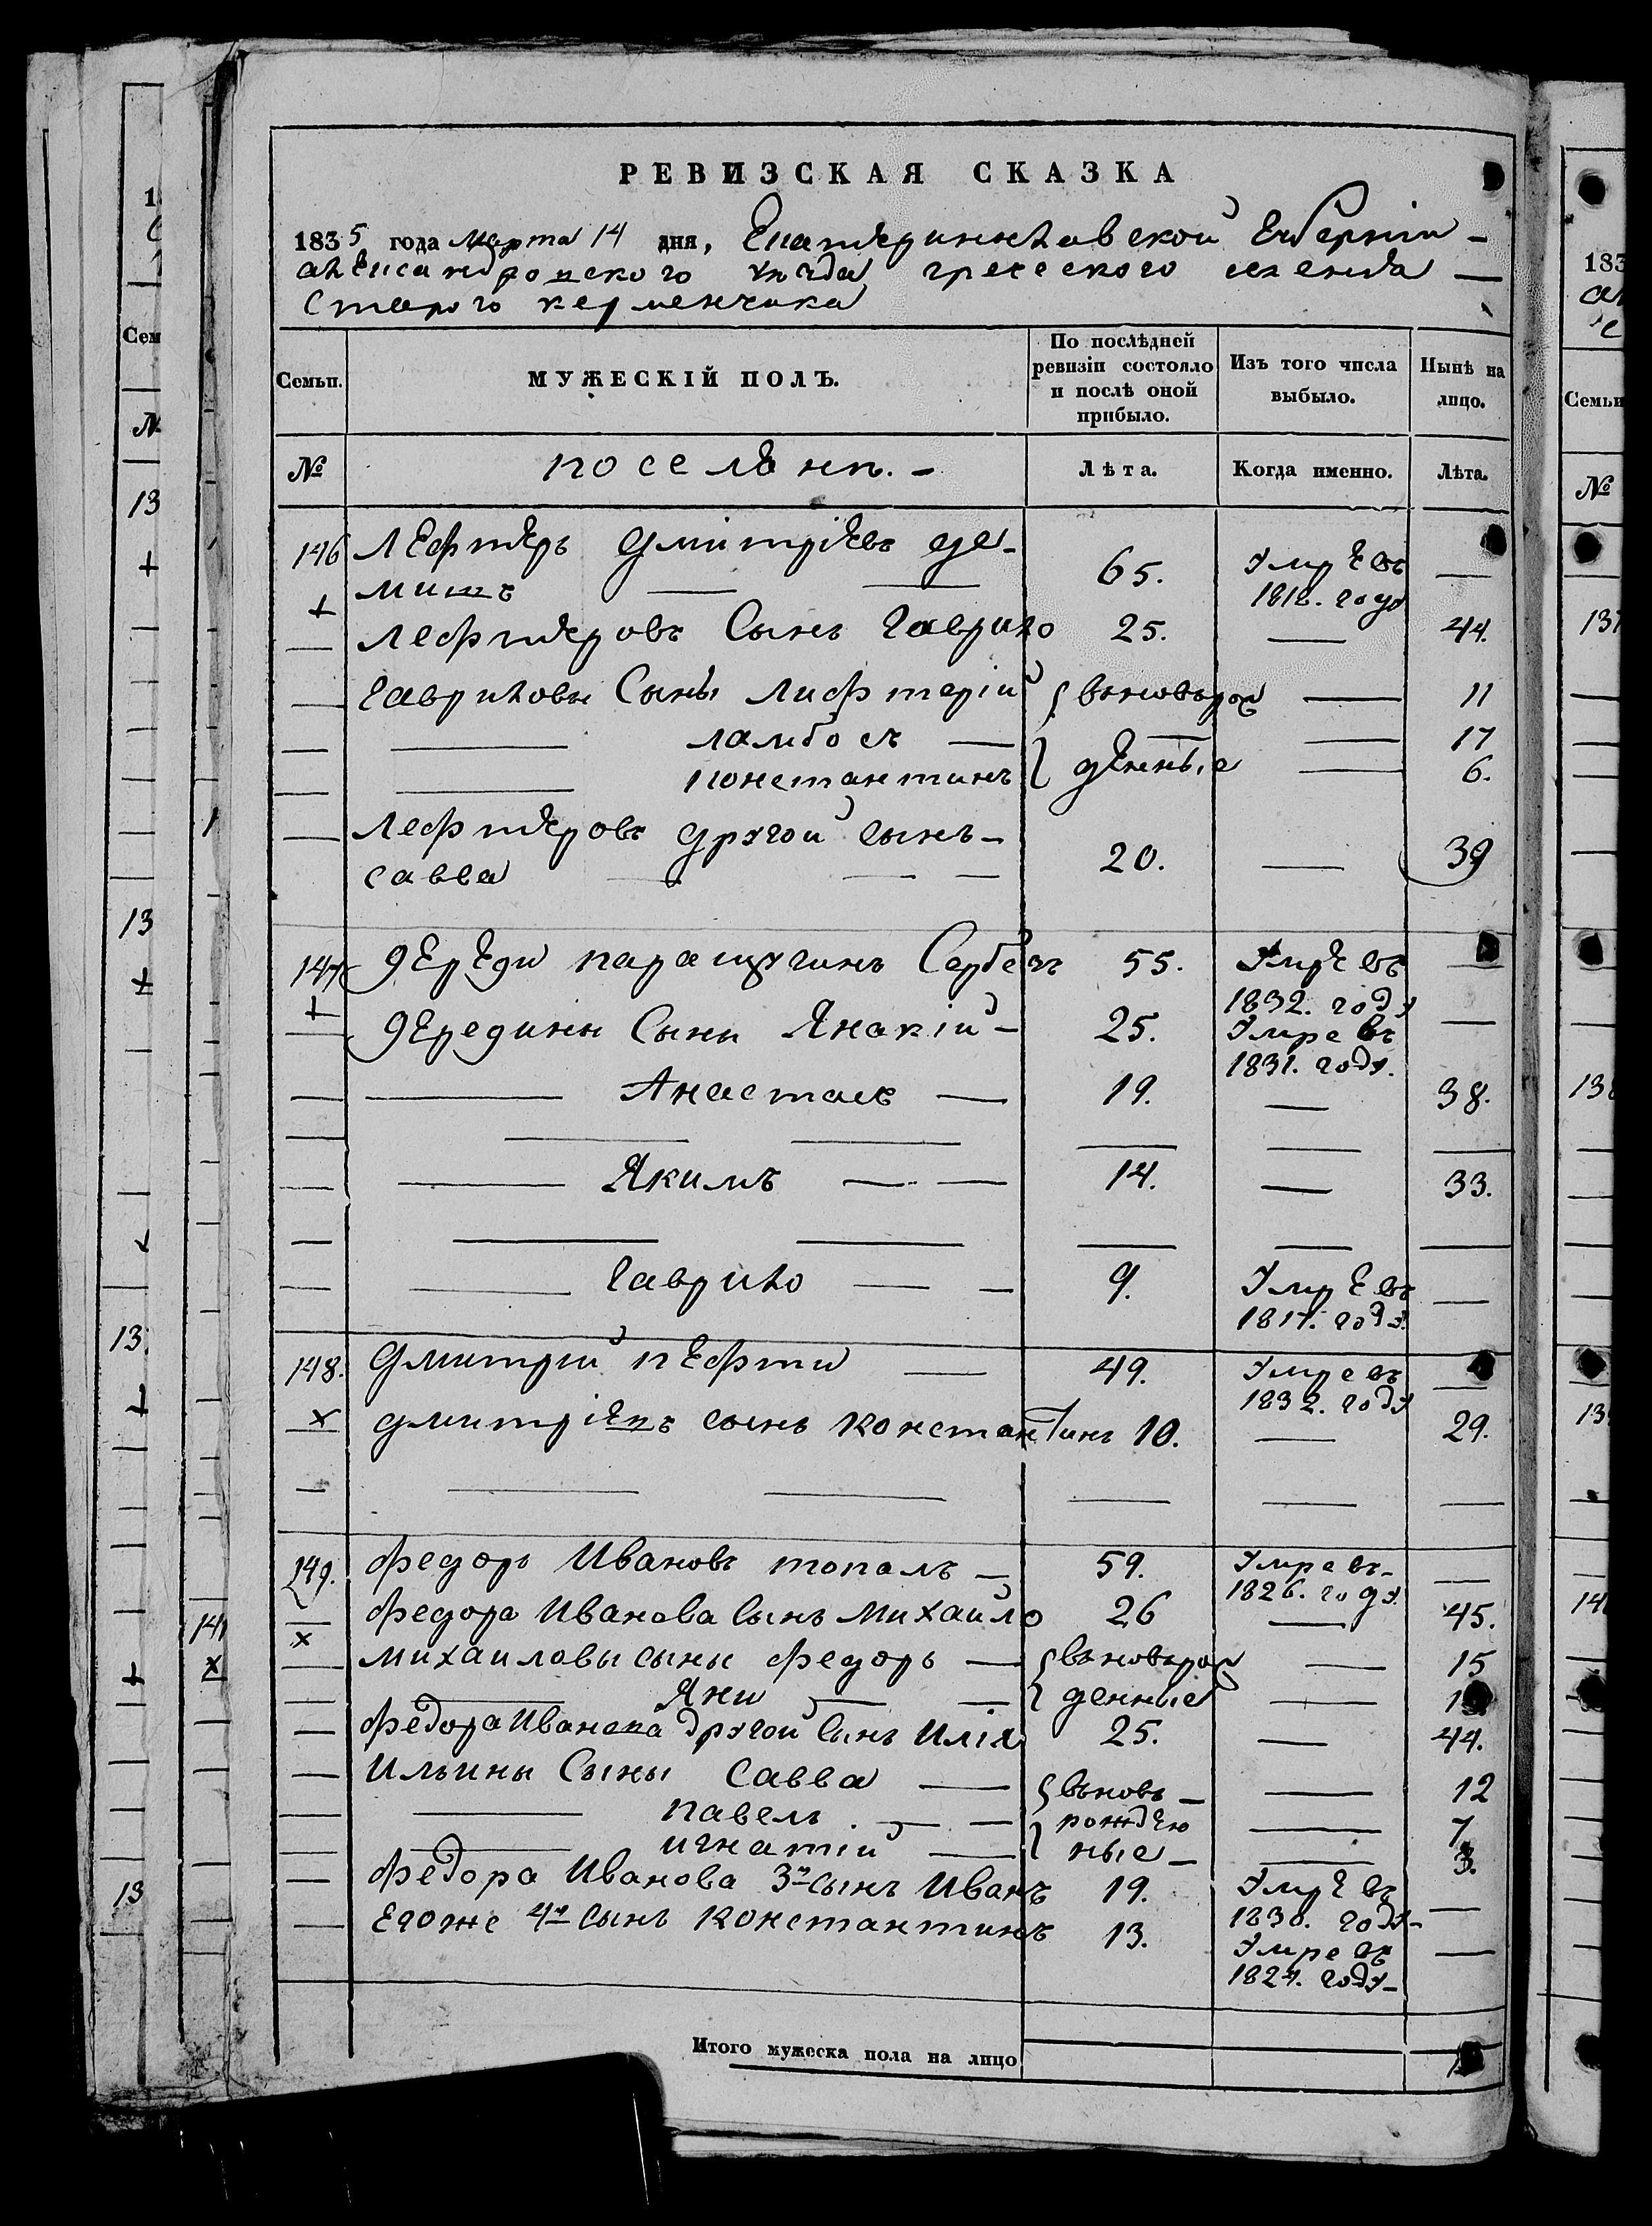 РЕВИЗСКАЯ СКАЗКА
1835 года марта 14 дня, Екатеринославской губернiи -
александровского уезда греческого селенiя —
Старого керменчика
Семьи.
МУЖЕСКІЙ ПОЛЪ.
По послѣдней ревизіи состояло и послѣ оной прибыло.
Изъ того числа выбыло.
Нынѣ на лицо.
№ поселянъ. - Лѣта. Когда именно. Лѣта.
146 Лефтеръ Дмитріевъ де-
мишъ — — 65. Умре въ 1812. году —
Лефтеровъ Сынъ Гаврило 25. — 44.
Гавриловы Сыны Лифтерій вновьрож — 11
— ламбосъ — — — 17
— константинъ денные — 6.
Лефтеровъ другой сынъ -
савва — — — 20. — 39
147 деreди Сербезъ 55. Умре въ 1832. году —
дередины Сыны Янакій - 25. Умре въ 1831. году. —
— Анастасъ — 19. — 38.
— Якимъ — — 14. — 33.
— Гаврило — — 9. Умре въ 1817. году. —
148. Дмитрий кефти — 49. Умре въ 1832. году —
дмитріевъ сынъ константинъ 10. — 29.
149. федоръ Ивановъ топалъ — 59. Умре въ - 1826. году. —
федора Иванова Сынъ Михаило 26 — 45.
михаиловы сыны федоръ — вновьрож — 15
— Яни — — денные —
федора Иванова другой Сынъ Илія 25. — 44.
Ильины Сыны Савва — вновь — — 12
— павелъ — — рожден — 7
— игнатій — ные — — 3.
федора Иванова 3й сынъ Иванъ 19. Умре въ 1830. году - —
Егоже 4й Сынъ константинъ 13. Умре въ 1827. году - —
Итого мужеска пола на лицо